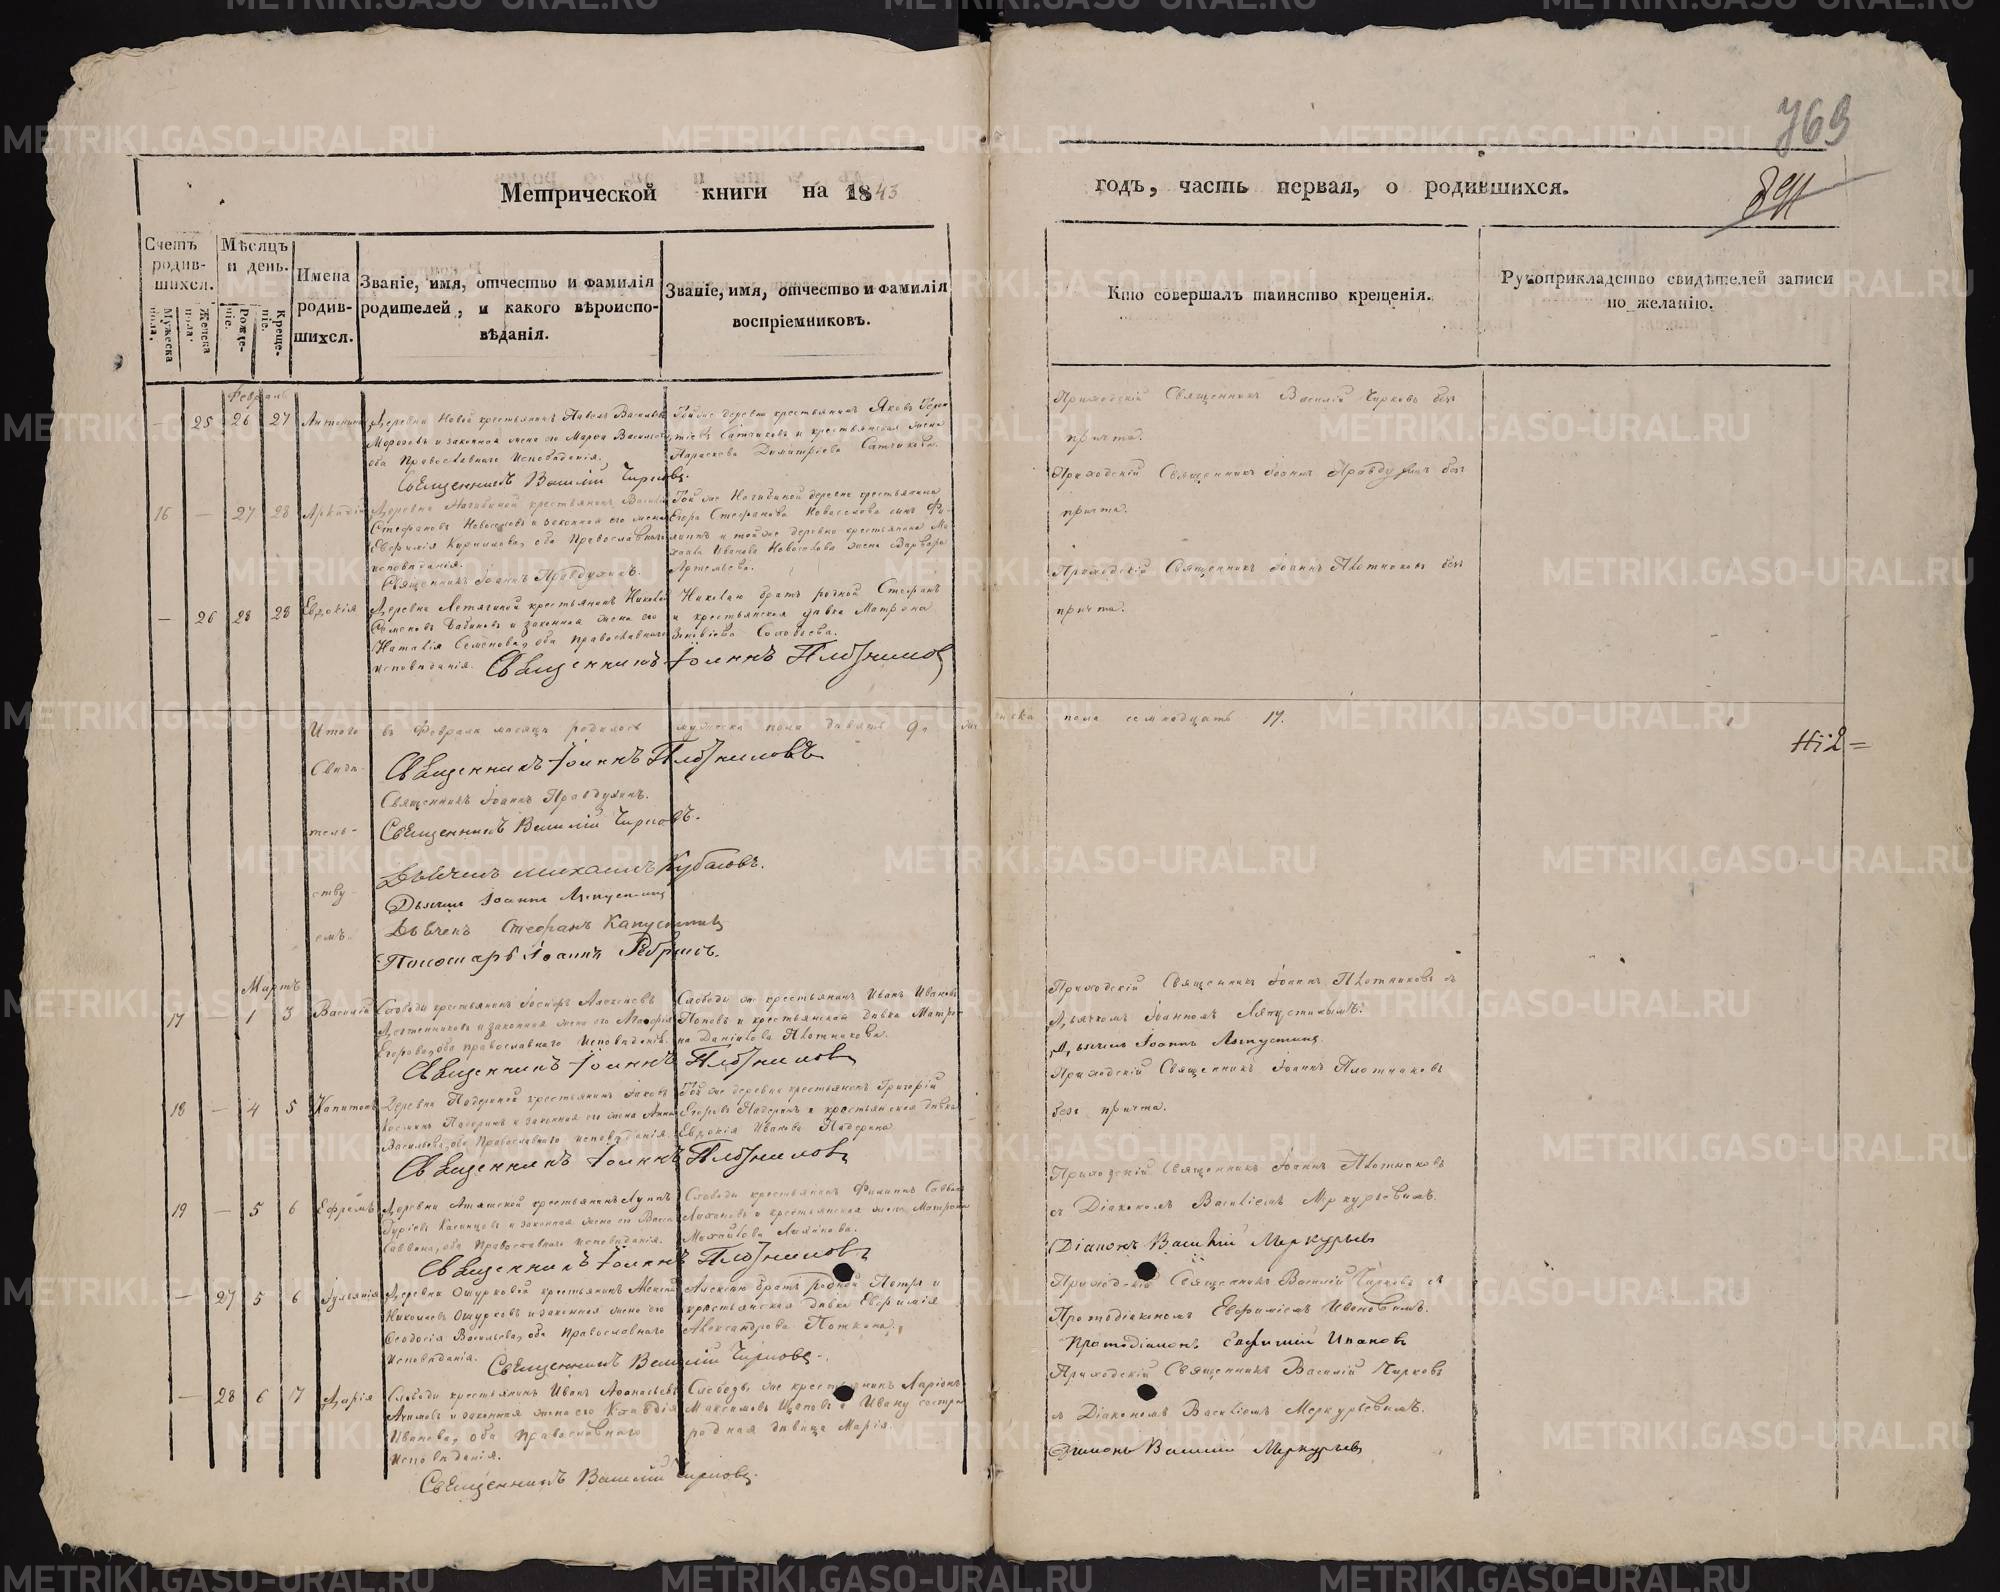 763
891
Метрической книги на 1843
годъ, часть первая, о родившихся.
Счетъ родив-шихся.
Мужеска пола.
Женска пола.
Мѣсяцъ и день.
Рожде-ніе.
Креще-ніе.
Имена родив-шихся.
Званіе, имя, отчество и фамилія
родителей, и какого вѣроиспо-
вѣданія.
Званіе, имя, отчество и фамилія
воспріемниковъ.
Кто совершалъ таинство крещенія.
Рукоприкладство свидѣтелей записи
по желанію.
Февраль
— 25 26 27 Антонина
Деревни Новой крестьянинъ Павелъ Васильевъ
Морозовъ и законная жена его Марѳа Васильева
оба Православнаго Исповѣданія.
Священникъ Василій Чирковъ.
Той же деревни крестьянинъ Яковъ
Сатчиковъ и крестьянская жена
Параскева Димитріева Сатчикова.
Приходскій Священникъ Василій Чирковъ безъ
причта.
16 — 27 28 Аркадій
Деревни Нагибиной крестьянинъ Василій
Стефановъ Новоселовъ и законная его жена
Евфимія Кириллова, оба Православнаго
исповѣданія.
Священникъ Іоаннъ Правдухинъ.
Той же Нагибиной деревни крестьянина
Егора Стефанова Новоселова сынъ Фи-
липпъ и той же деревни крестьянина Ми-
хаила Иванова Новоселова жена Варвара
Артемьева.
Приходскій Священникъ Іоаннъ Правдухинъ безъ
причта.
— 26 28 28 Евдокія
Деревни Летягиной крестьянинъ Николай
Семеновъ Бабиновъ и законная жена его
Наталія Семенова, оба православнаго
исповѣданія. Священникъ Іоаннъ Плотниковъ
Николаю братъ родной Стефанъ
и крестьянская дѣвка Матрона
Зиновіева Соловьева.
Приходскій Священникъ Іоаннъ Плотниковъ безъ
причта.
Итого въ Февралѣ мѣсяцѣ родилось мужеска пола девять 9. женска пола семнадцать 17.
Свидѣ-
тель-
ству-
емъ.
Священникъ Іоаннъ Плотниковъ
Священникъ Іоаннъ Правдухинъ.
Священникъ Василій Чирковъ.
Дьячекъ Михаилъ Кубасовъ.
Дьячекъ Іоаннъ Ляпустинъ
Дьячекъ Стефанъ Капустинъ
Пономарь Іоаннъ Ребринъ.
Мартъ
17 1 3 Василій
Слободы крестьянинъ Іосифъ Алексѣевъ
и законная жена его Марѳа
Егорова, оба православнаго Исповѣданія.
Священникъ Іоаннъ Плотниковъ
Слободы же крестьянинъ Иванъ Ивановъ
Поповъ и крестьянская дѣвка Матро-
на Даніилова Плотникова.
Приходскій Священникъ Іоаннъ Плотниковъ съ
Дьячкомъ Іоанномъ Ляпустинымъ.
Дьячекъ Іоаннъ Ляпустинъ.
18 — 4 5 Капитонъ
Деревни Падериной крестьянинъ Іаковъ
Козминъ Падеринъ и законная его жена Анна
Васильева, оба Православнаго исповѣданія.
Священникъ Іоаннъ Плотниковъ
Той же деревни крестьянинъ Григорій
Егоровъ Падеринъ и крестьянская дѣвка
Евдокія Иванова Падерина
Приходскій Священникъ Іоаннъ Плотниковъ
безъ причта.
19 — 5 6 Ефремъ
Деревни крестьянинъ Луппъ
Гурьевъ Казанцовъ и законная жена его Васса
Саввина, оба Православнаго исповѣданія.
Священникъ Іоаннъ Плотниковъ
Слободы крестьянинъ Филиппъ Саввинъ
и крестьянская жена Матрона
Михайлова
Приходскій Священникъ Іоаннъ Плотниковъ
съ Діакономъ Василіемъ Меркурьевымъ.
Діаконъ Василій Меркурьевъ
— 27 5 6 Іуліанія
Деревни Ошурковой крестьянинъ Алексѣй
Николаевъ Ошурковъ и законная жена его
Ѳеодосія Васильева, оба Православнаго
Исповѣданія. Священникъ Василій Чирковъ.
Алексѣю братъ родной Петръ и
крестьянская дѣвка Евфимія
Александрова Поткина.
Приходскій Священникъ Василій Чирковъ съ
Протодіакономъ Евфиміемъ Ивановымъ.
Протодіаконъ Евфимій Ивановъ
— 28 6 7 Дарія
Слободы крестьянинъ Иванъ Аѳанасьевъ
Акимовъ и законная жена его Клавдія
Иванова, оба Православнаго
исповѣданія.
Священникъ Василій Чирковъ.
Слободы же крестьянинъ Ларіонъ
Максимовъ и Ивану сестра
родная дѣвица Марія.
Приходскій Священникъ Василій Чирковъ
съ Діакономъ Василіемъ Меркурьевымъ.
Діаконъ Василій Меркурьевъ
METRIKI.GASO-URAL.RU